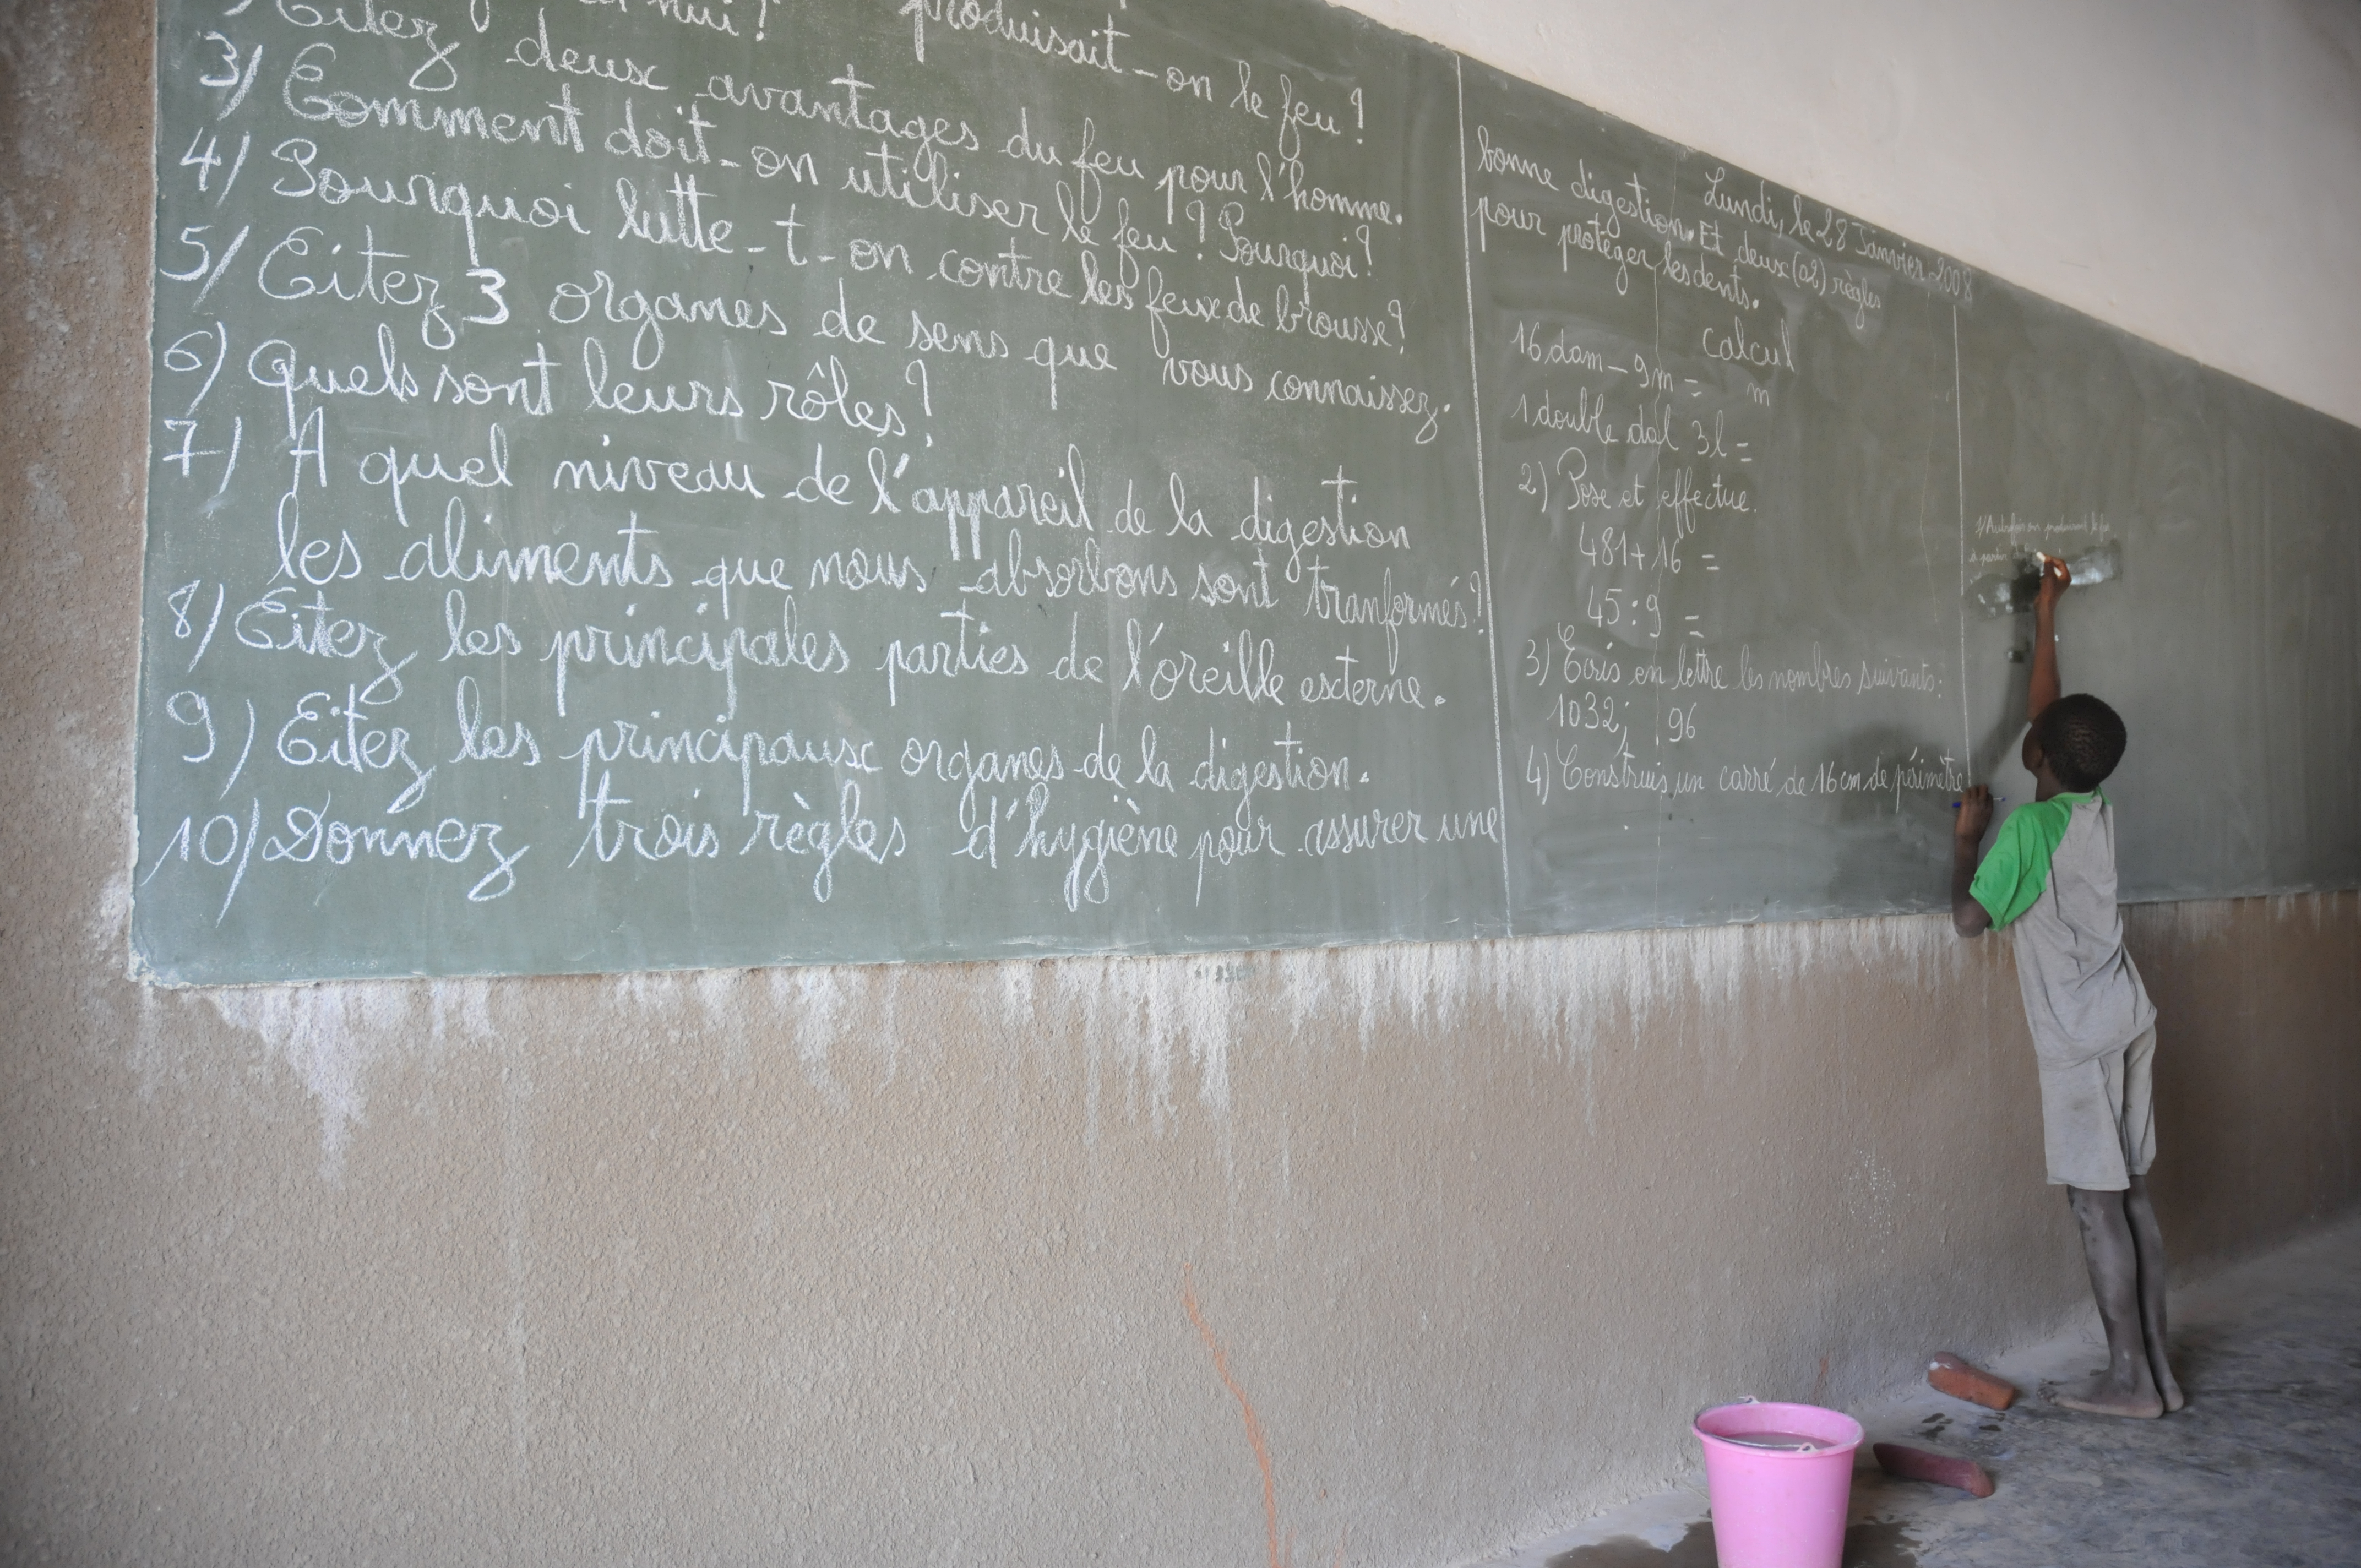 hui? produisait-on le feu?
Citez deux avantages du feu pour l'homme.
3) Comment doit-on utiliser le feu? Pourquoi?
4) Pourquoi lutte-t-on contre les feux de brousse?
5) Citez 3 organes de sens que vous connaissez.
6) Quels sont leurs rôles?
7) A quel niveau de l'appareil de la digestion
les aliments que nous absorbons sont tranformés?
8) Citez les principales parties de l'oreille externe.
9) Citez les principaux organes de la digestion.
10) Donnez trois règles d'hygiène pour assurer une
Lundi, le 28 Janvier 2008
bonne digestion. Et deux (02) règles
pour protéger les dents.
Calcul
16 dam - 9m = m
1 double dal 3l =
2) Pose et effectue.
481 + 16 =
45 : 9 =
3) Ecris en lettre les nombres suivants:
1032; 96
4) Construis un carré de 16 cm de périmètre
1) Autrefois on produisait le feu
à partir